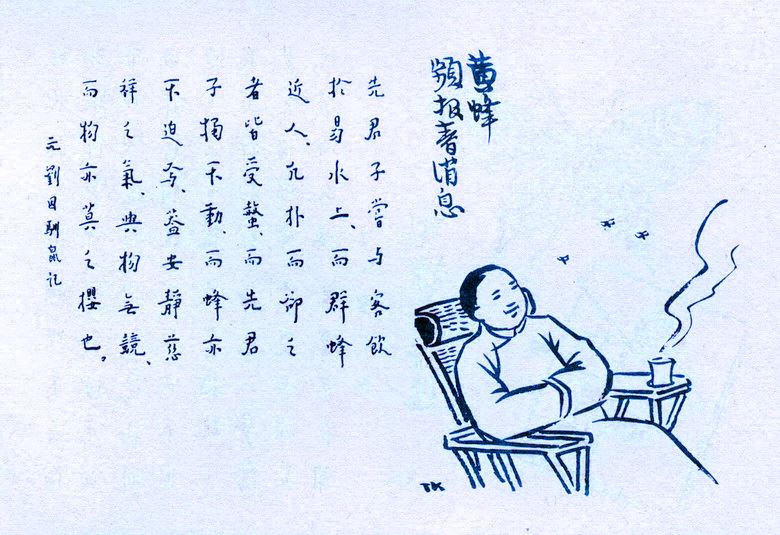 黄蜂
頻报春消息
先君子嘗与客飲
於易水上、而群蜂
近人、凡扑而卻之
者皆受螫、而先君
子獨不動、而蜂亦
不迫焉、蓋安靜慈
祥之氣、與物無競、
而物亦莫之攖也。
元劉因馴鼠記
TK